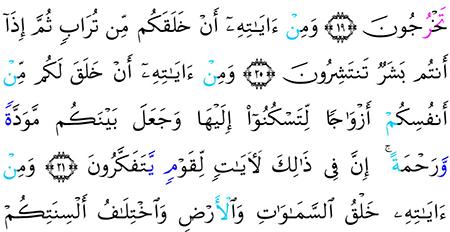 تُخْرَجُونَ ١٩ وَمِنْ ءَايَـٰتِهِۦٓ أَنْ خَلَقَكُم مِّن تُرَابٍ ثُمَّ إِذَآ
أَنتُم بَشَرٌ تَنتَشِرُونَ ٢٠ وَمِنْ ءَايَـٰتِهِۦٓ أَنْ خَلَقَ لَكُم مِّنْ
أَنفُسِكُمْ أَزْوَٰجًا لِّتَسْكُنُوٓا۟ إِلَيْهَا وَجَعَلَ بَيْنَكُم مَّوَدَّةً
وَرَحْمَةً ۚ إِنَّ فِى ذَٰلِكَ لَـَٔايَـٰتٍ لِّقَوْمٍ يَتَفَكَّرُونَ ٢١ وَمِنْ
ءَايَـٰتِهِۦ خَلْقُ ٱلسَّمَـٰوَٰتِ وَٱلْأَرْضِ وَٱخْتِلَـٰفُ أَلْسِنَتِكُمْ